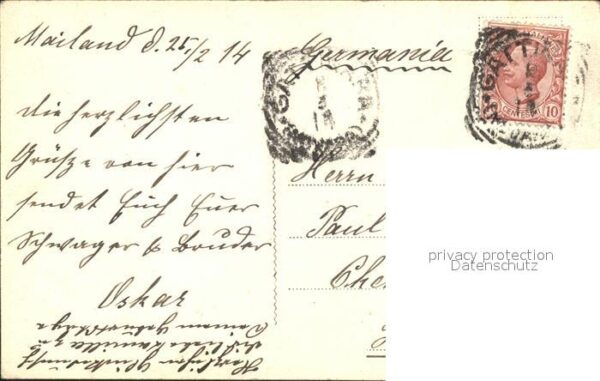 Mailand d. 25./2 14
Germania
die herzlichsten
Grüsze von hier
sendet Euch Euer
Schwager & Bruder
Oskar
CENTESIMI 10
Herrn
Paul
Che
privacy protection
Datenschutz
Herzlichen Glückwunsch
Deinem Geburtstage